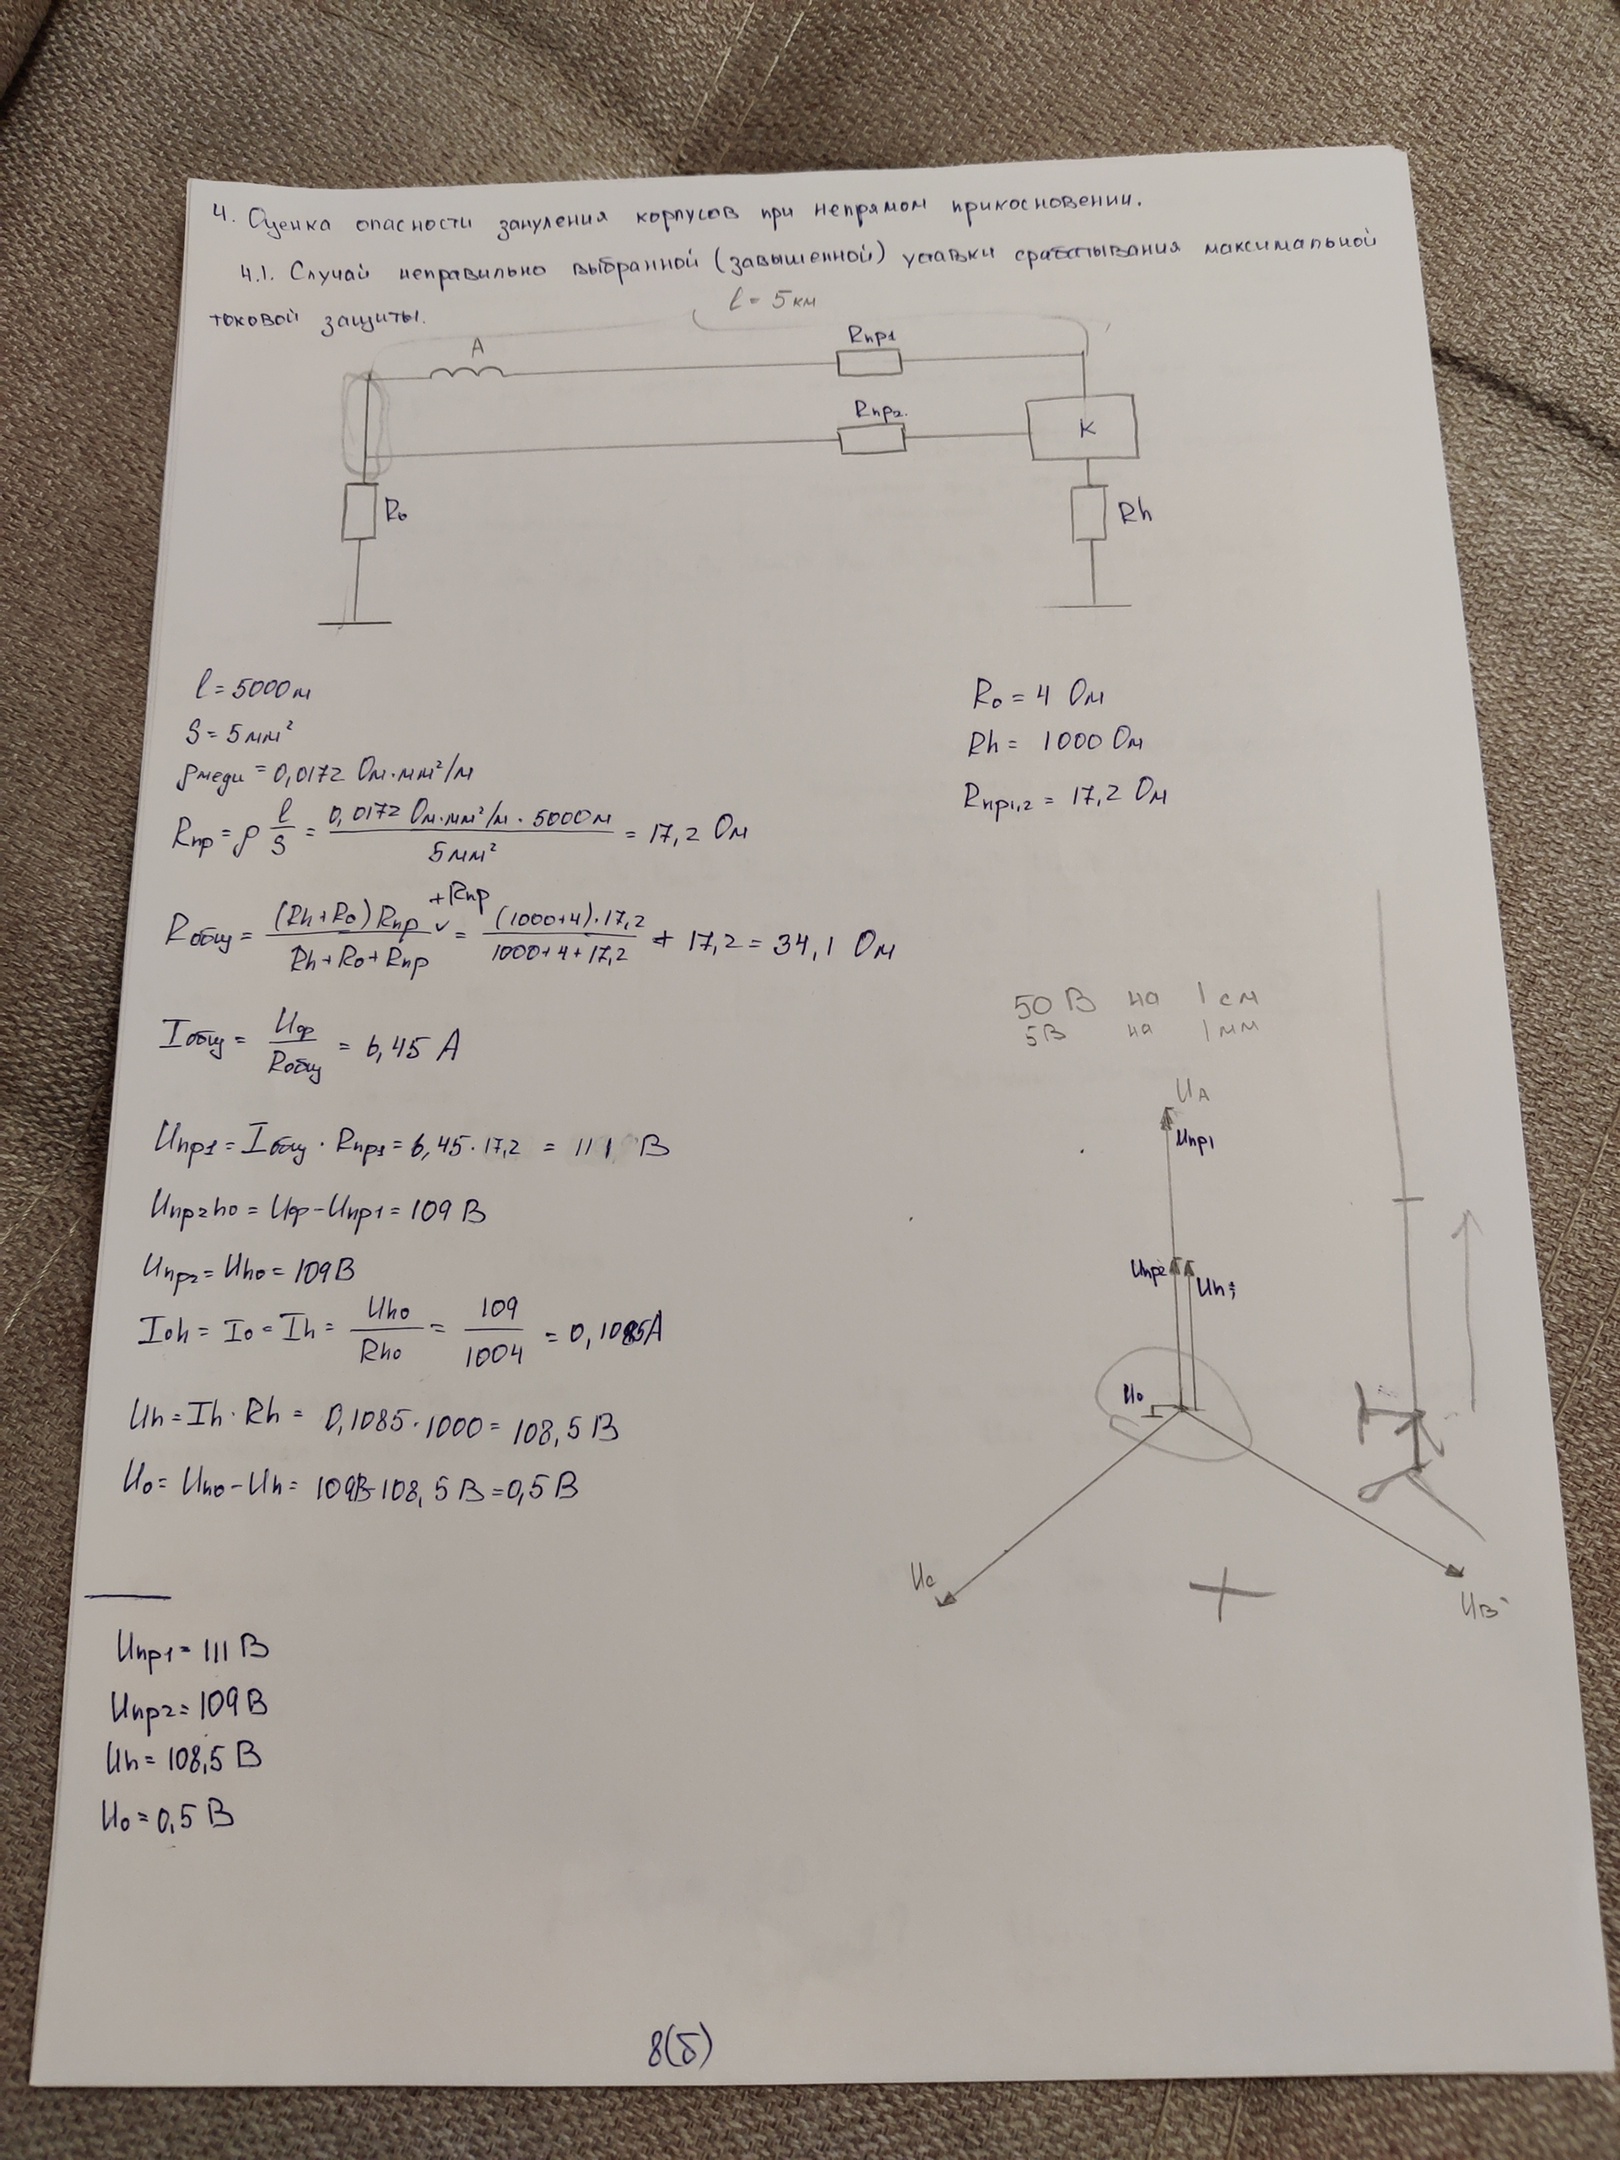 4. Оценка опасности зануления корпусов при непрямом прикосновении.
4.1. Случай неправильно выбранной (завышенной) уставки срабатывания максимальной
токовой защиты.
l = 5 км
A
Rпр1
Rпр2.
K
R₀
Rh
l = 5000 м
S = 5 мм²
ρмеди = 0,0172 Ом·мм²/м
Rпр = ρ l/S = 0,0172 Ом·мм²/м · 5000м / 5 мм² = 17,2 Ом
R₀ = 4 Ом
Rh = 1000 Ом
Rпр1,2 = 17,2 Ом
Rобщ = (Rh+R₀)Rпр / Rh+R₀+Rпр +Rпр = (1000+4)·17,2 / 1000+4+17,2 + 17,2 = 34,1 Ом
Iобщ = Uф / Rобщ = 6,45 А
50 В на 1 см
5В на 1 мм
Uпр1 = Iобщ · Rпр1 = 6,45·17,2 = 111 В
Uпр2h0 = Uф - Uпр1 = 109 В
Uпр2 = Uh0 = 109 В
I0h = I0 = Ih = Uh0 / Rh0 = 109 / 1004 = 0,1085А
Uh = Ih · Rh = 0,1085·1000 = 108,5 В
U0 = Uh0 - Uh = 109В-108,5 В = 0,5 В
UA
Uпр1
Uпр2
Uh
U0
UC
UB
Uпр1 = 111 В
Uпр2 = 109 В
Uh = 108,5 В
U0 = 0,5 В
8(б)